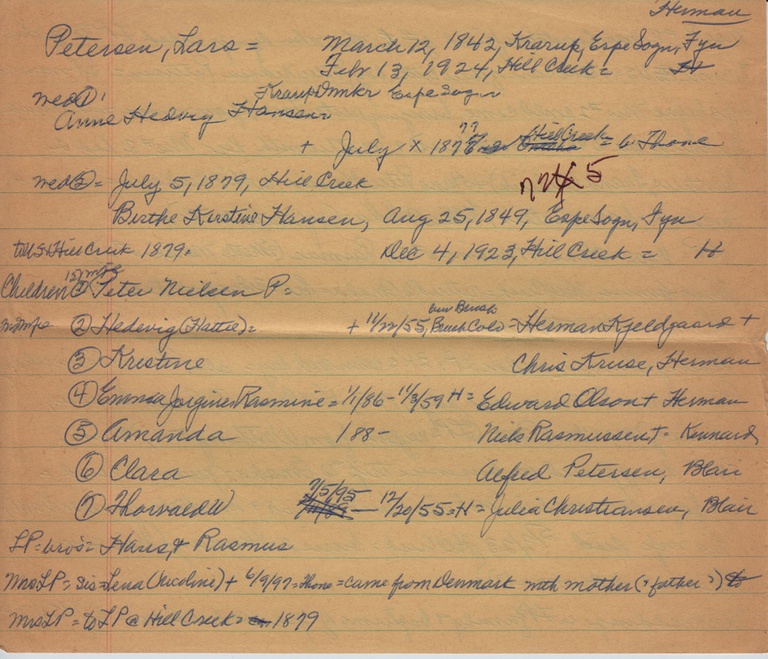 Herman
Petersen, Lars = March 12, 1842, Krarup, Espe Sogn, Fyn
Feb 13, 1924, Hill Creek =
wed ① Krarup Espe Sogn
Anne Hedvig Hansen
+ July x 187 Hill Creek = 6 Thone
wed ② = July 5, 1879, Hill Creek
Birthe Kirstine Hansen, Aug 25, 1849, Espe Sogn, Fyn
to US Hill Creek 1879. Dec 4, 1923, Hill Creek = H
Children ① Peter Nielsen P =
② Hedevig (Hattie) = + 11/22/55, Brush Colo = Herman Kjeldgaard +
③ Kristine Chris Kruse, Herman
④ Emma Jorgine Rasmine = 1/1/86 - 11/3/59 H = Edward Olson + Herman
⑤ Amanda 188- Niels Rasmussen + - Kennard
⑥ Clara Alfred Petersen, Blair
⑦ Thorvald W 7/5/95 - 12/20/55 = H = Julia Christiansen, Blair
LP = bros = Hans, + Rasmus
Mrs LP = Sis = Lena (Nicoline) + 6/9/97 = Thone = came from Denmark with mother (+ father ?) to
Mrs LP = to LP @ Hill Creek = 1879